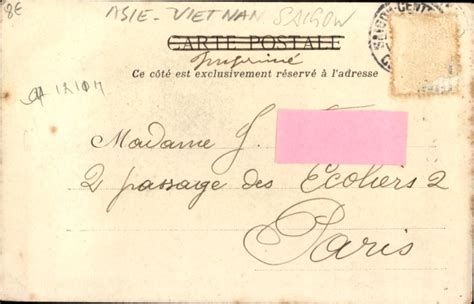 8€
ASIE - VIETNAN SAIGOW
CARTE POSTALE
Imprimé
Ce côté est exclusivement réservé à l'adresse
SAIGON-CENTRAL
Madame J.
2 passage des Écoliers 2
Paris